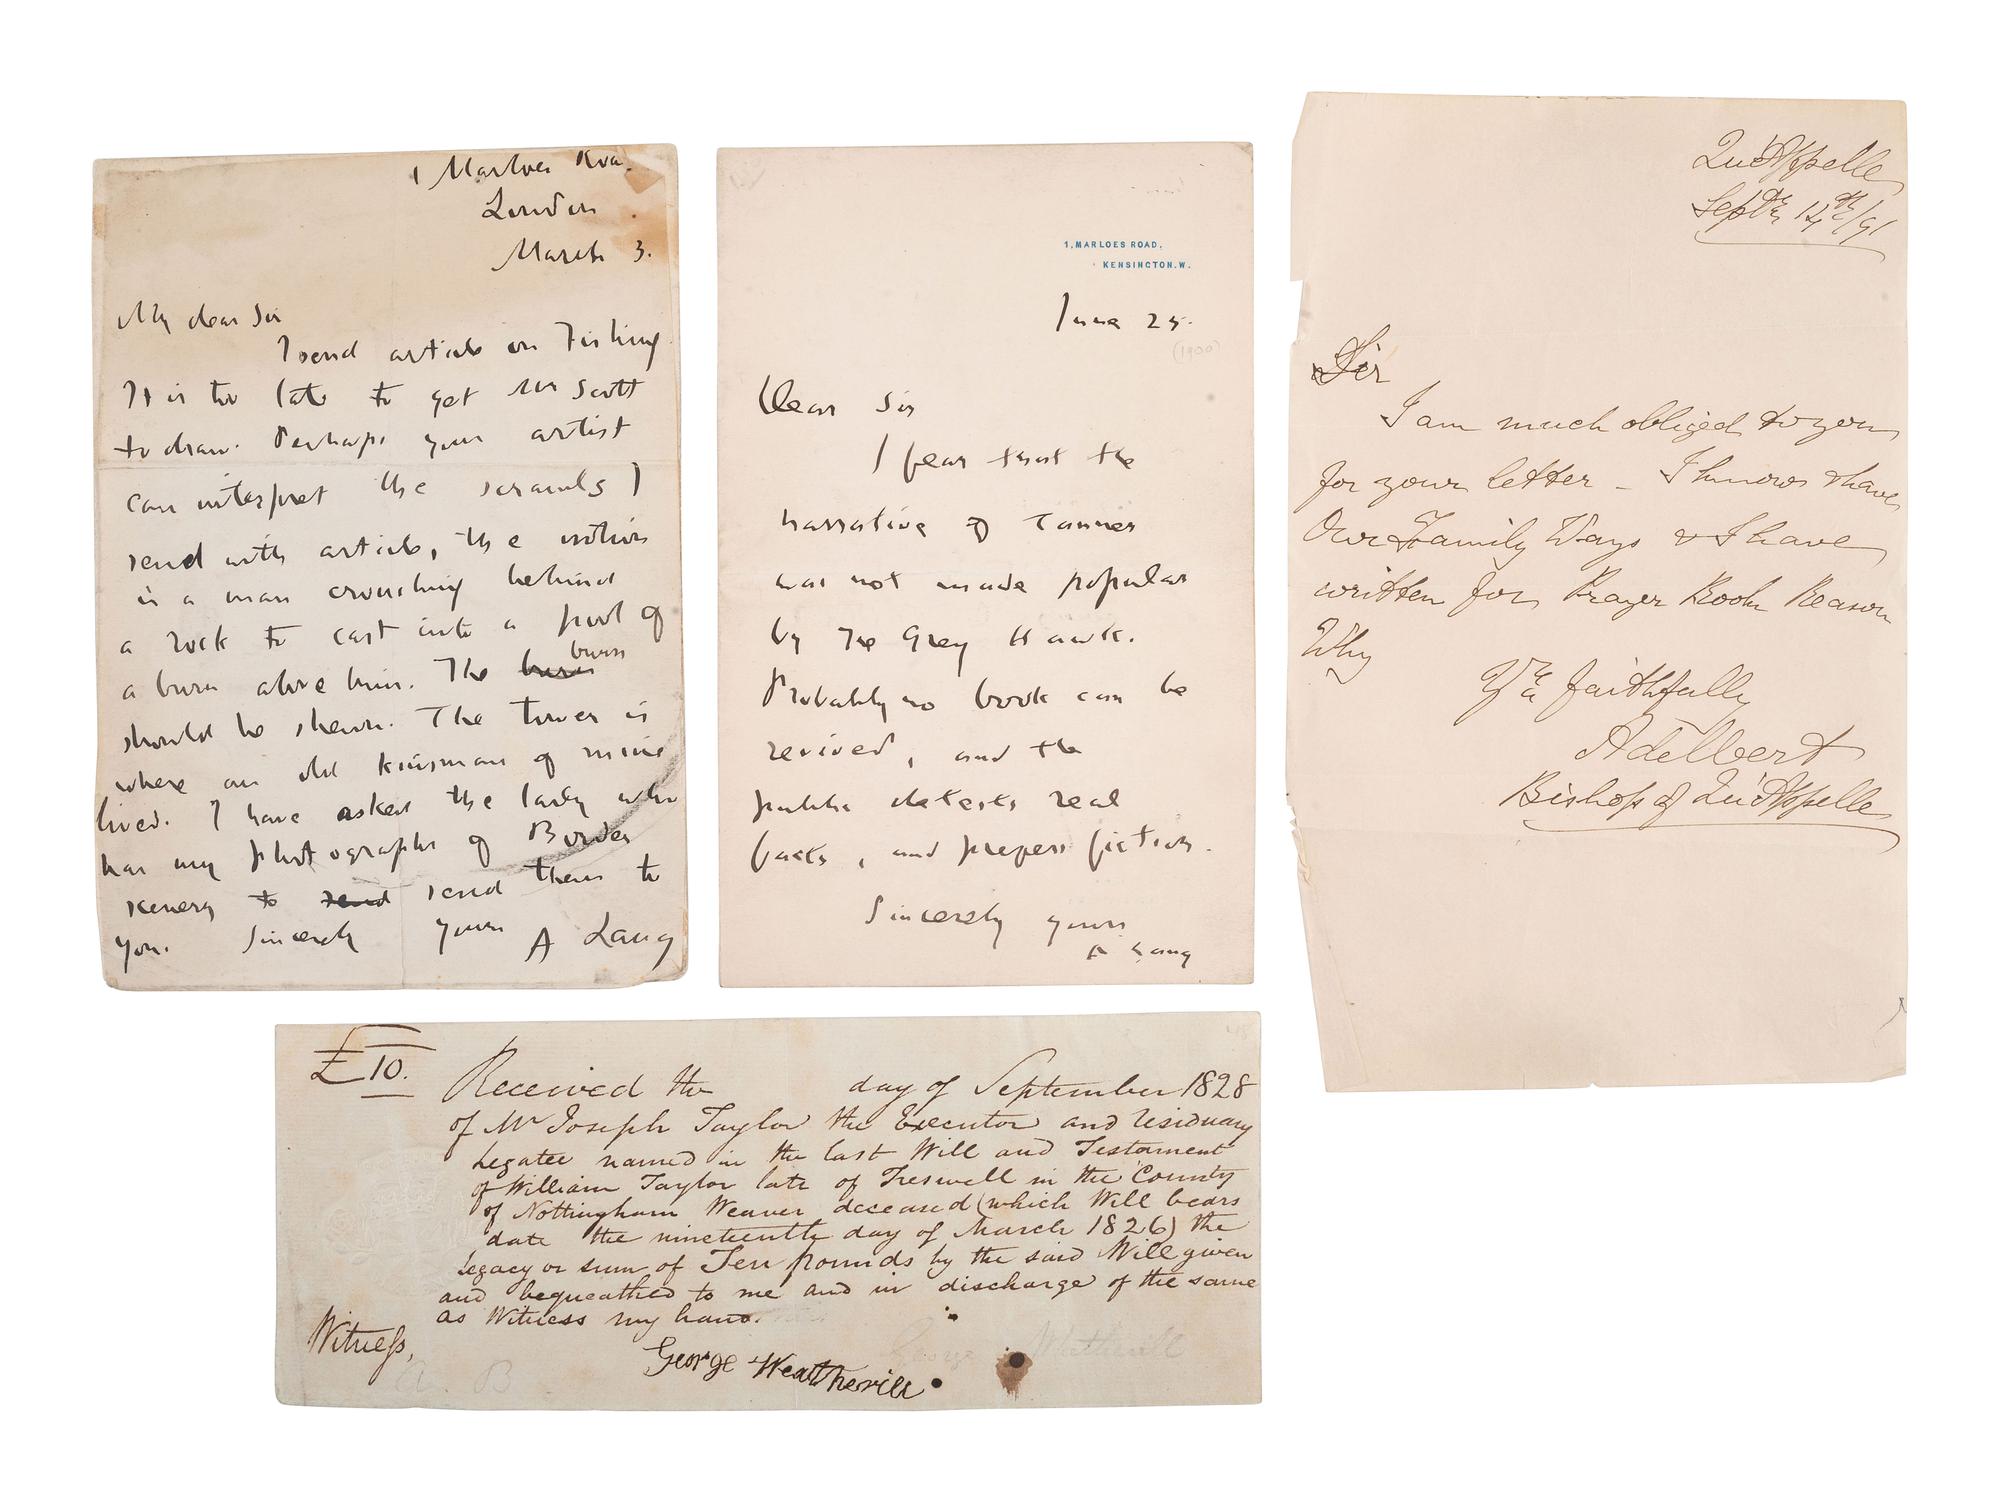 1 Marloes Roa
London
March 3.
My dear Sir
I send article on Fishing
It is too late to get Mr Scott
to draw. Perhaps your artist
can interpret the scrawls I
send with article, the notion
is a man crouching behind
a rock to cast into a pool of
a burn above him. The burn burn
should be shewn. The tower is
where an old kinsman of mine
lived. I have asked the lady who
has my photographs of Border
scenery to send send them to
you. Sincerely yours A Lang
1, MARLOES ROAD,
KENSINGTON. W.
June 25.
(1900)
Dear Sir
I fear that the
narrative of Tanner
was not made popular
by The Grey Hawk.
Probably no book can be
revived, and the
public detests real
facts, and prefers fiction.
Sincerely yours
A Lang
Qu'Appelle
Septr 14th/91
Sir
I am much obliged to you
for your letter - I know & have
Our Family Ways & I have
written for Prayer Book Reason
Why
Yrs faithfully
Adelbert
Bishop of Qu'Appelle
£10.
Received the day of September 1828
of Mr Joseph Taylor the Executor and residuary
Legatee named in the last Will and Testament
of William Taylor late of Treswell in the County
of Nottingham Weaver deceased (which Will bears
date the nineteenth day of March 1826) the
legacy or sum of Ten pounds by the said Will given
and bequeathed to me and in discharge of the same
as Witness my hand.
Witness,
George Weatherill
George Weatherill
A. B